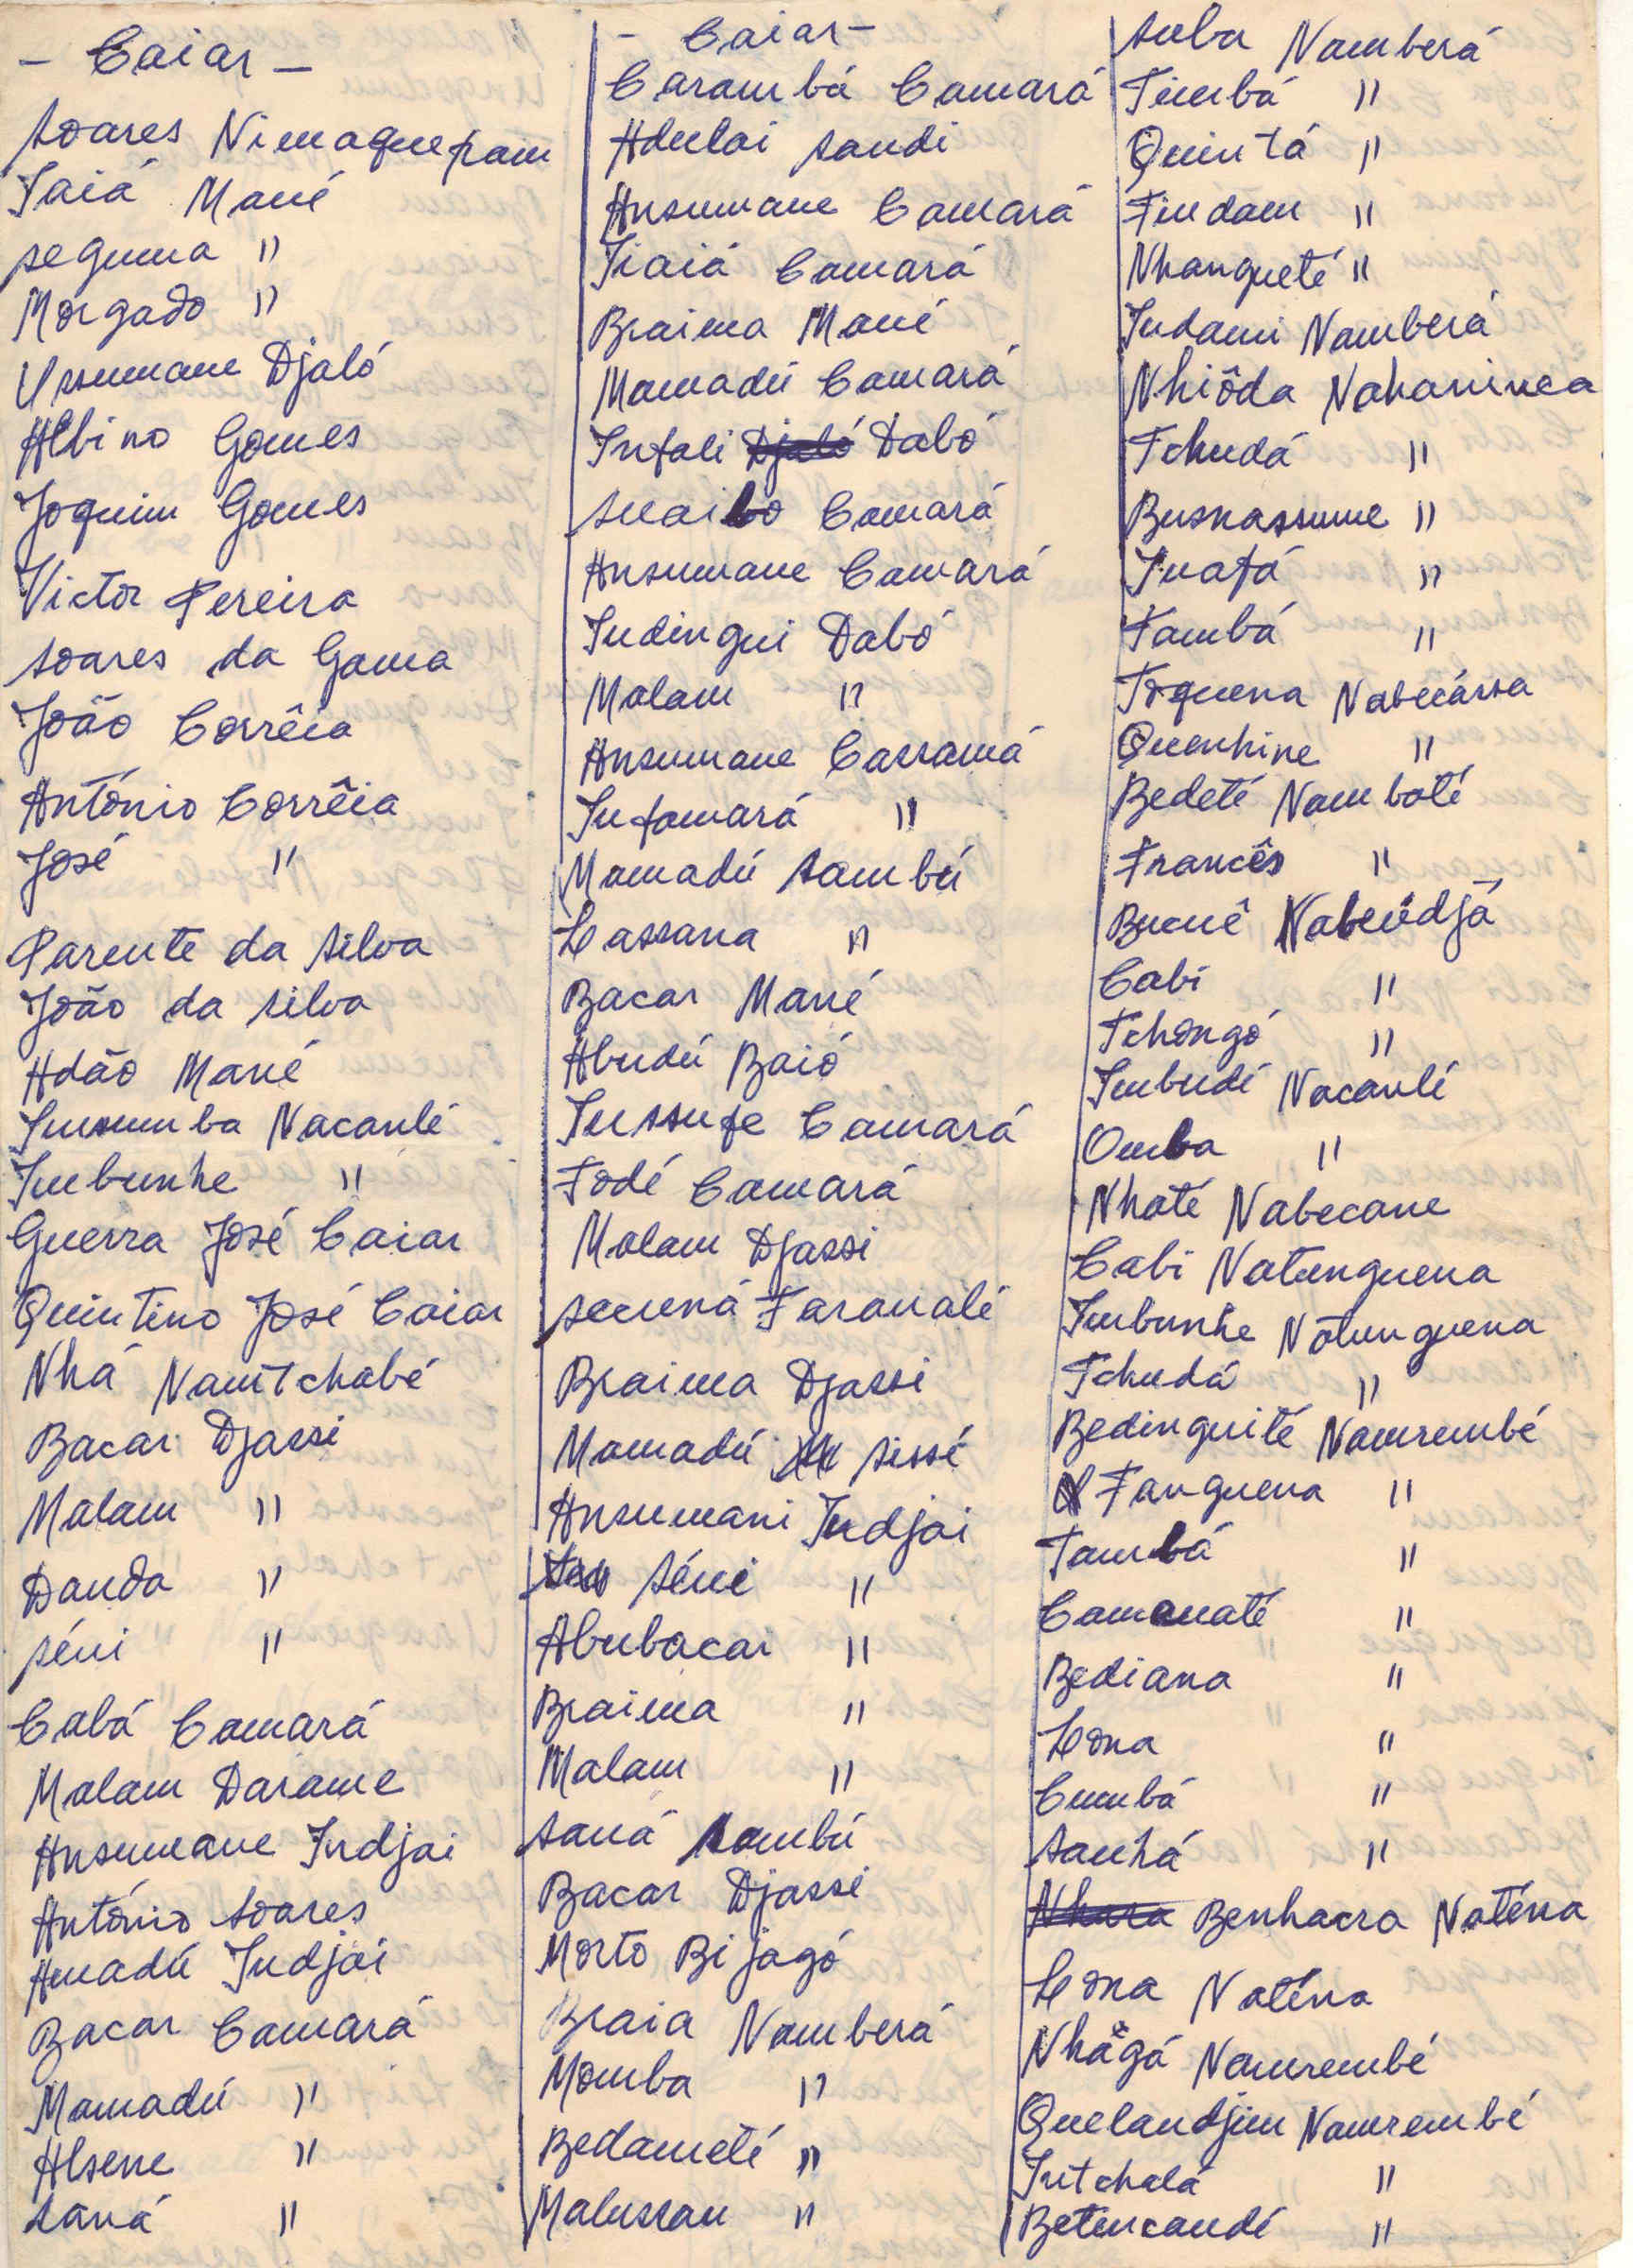 - Caiar -
Soares Nimaquepam
Iaiá Mané
Seguma "
Morgado "
Ussumane Djaló
Albino Gomes
Joquim Gomes
Victor Pereira
Soares da Gama
João Corrêia
António Corrêia
José "
Parente da Silva
João da Silva
Adão Mané
Insumba Nacanlé
Imbunhe "
Guerra José Caiar
Quintino José Caiar
Nhá Namtchabé
Bacar Djassi
Malam "
Dauda "
Séni "
Cabá Camará
Malam Darame
Ansumane Indjai
António Soares
Amadú Indjai
Bacar Camará
Mamadú "
Alsene "
Saná "
- Caiar -
Carambá Camará
Adulai Sandi
Ansumane Camará
Iiaiá Camará
Braima Mané
Mamadú Camará
Infali Djaló Dabó
Suaibo Camará
Ansumane Camará
Indingui Dabó
Malam "
Ansumane Cassamá
Infamará "
Mamadú Sambú
Lassana "
Bacar Mané
Abudú Baió
Iussufe Camará
Fodé Camará
Malam Djassi
Secuná Faranalé
Braima Djassi
Mamadú Sissé
Ansumani Indjai
Séni "
Abubacar "
Braima "
Malam "
Saná Sambú
Bacar Djassi
Morto Bijagó
Braia Namberá
Momba "
Bedameté "
Malussan "
Suba Namberá
Timbá "
Quintá "
Findam "
Nhanqueté "
Indami Namberá
Nhiôda Nahaninca
Tchudá "
Busnassume "
Inafá "
Tambá "
Toquena Nabecársa
Quenhine "
Bedeté Nambaté
Francês "
Bucnê Nabeúdjã
Cabi "
Tchongó "
Imbudé Nacanlé
Omba "
Nhaté Nabecane
Cabi Natunguena
Imbunhe Nãtunguena
Tchudá "
Bedinguité Namrembé
Fanguena "
Tambá "
Camanaté "
Bediana "
Lona "
Cumbá "
Sanhá "
Nhara Benhacra Naténa
Lona Naténa
Nhãgá Namrembé
Quelandjim Namrembé
Intchalá "
Betencandé "